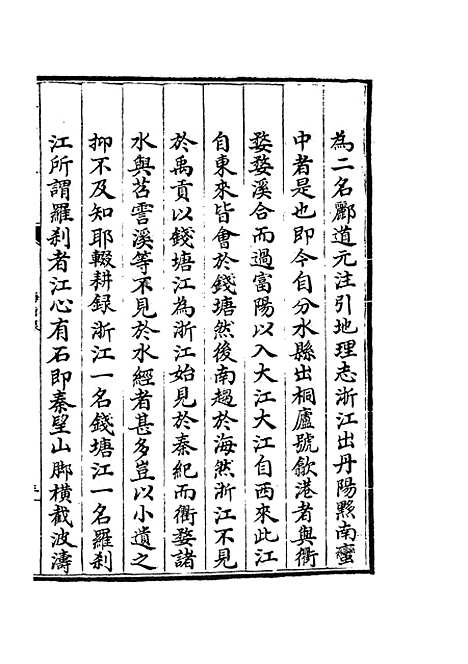 為二名酈道元注引地理志浙江出丹陽黟南蠻
中者是也即今自分水縣出桐廬號歙港者與衢
婺婺溪合而過富陽以入大江大江自西來此江
自東來皆會於錢塘然後南趨於海然浙江不見
於禹貢以錢塘江為浙江始見於秦紀而衢婺諸
水與苕霅溪等不見於水經者甚多豈以小遺之
抑不及知耶輟耕録浙江一名錢塘江一名羅刹
江所謂羅刹者江心有石即秦望山脚横截波濤